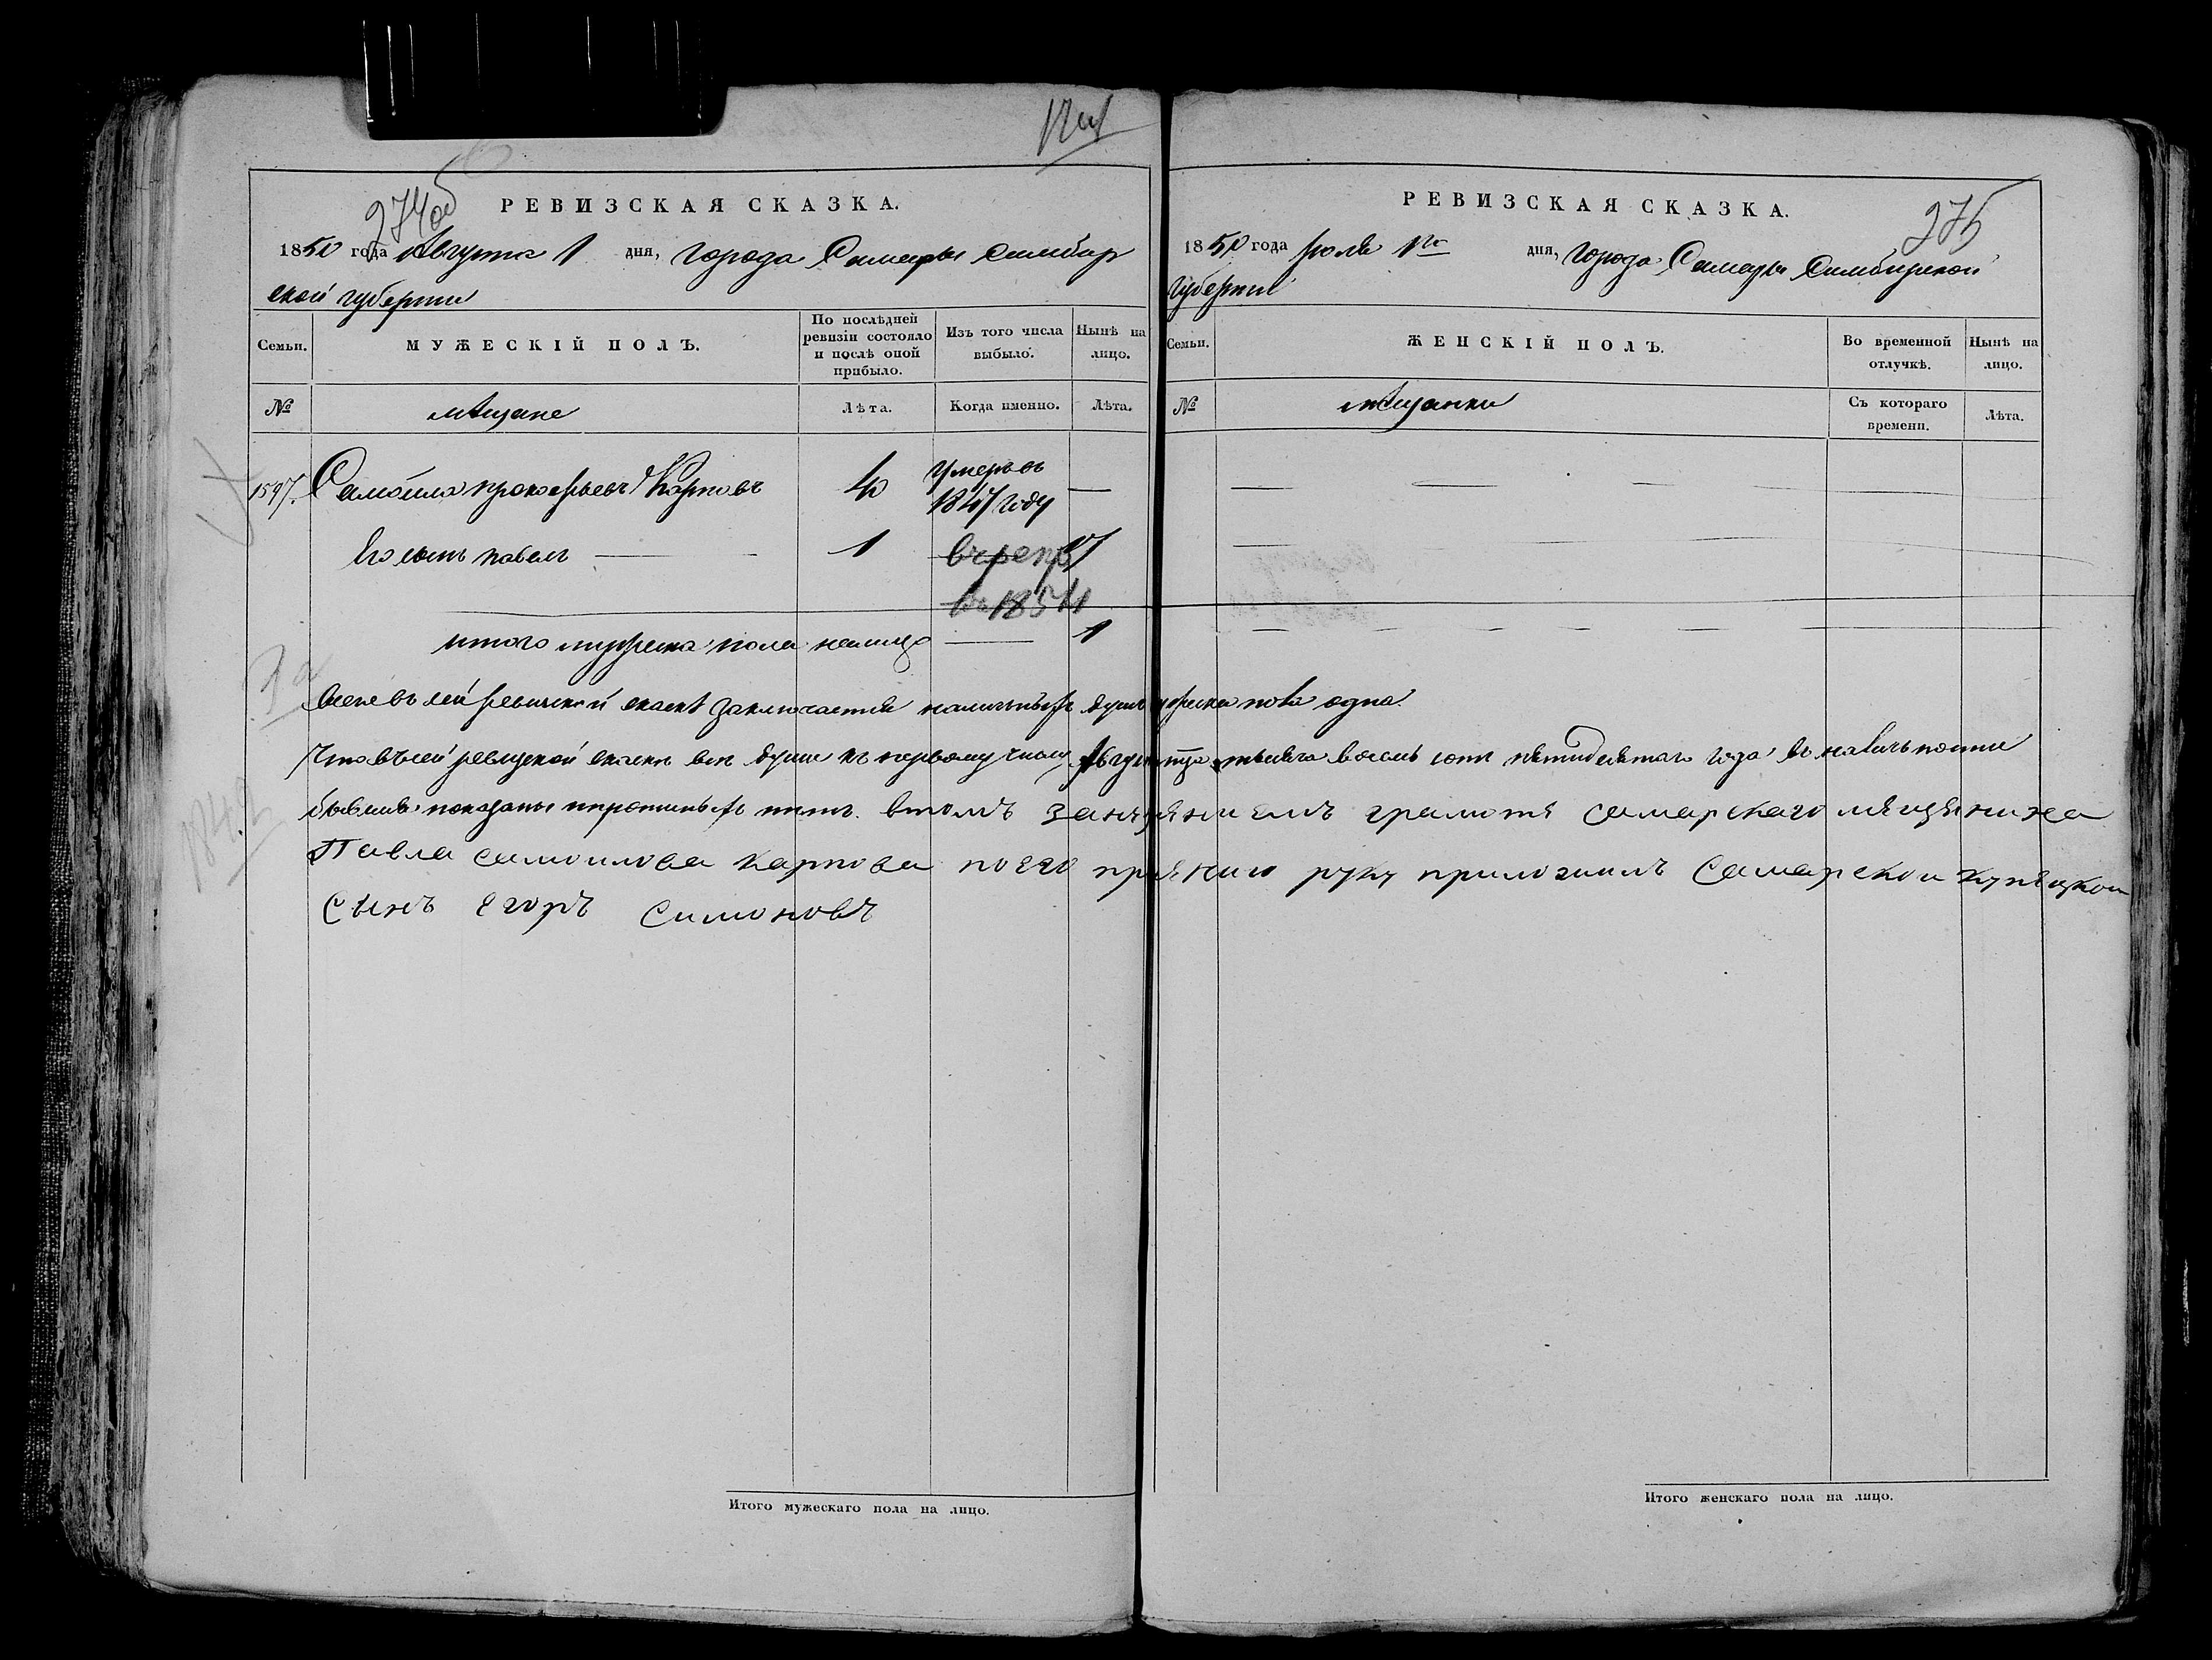 274об
РЕВИЗСКАЯ СКАЗКА.
1850 года Августа 1 дня, города Самары Симбир
ской губернии
Семьи. МУЖЕСКІЙ ПОЛЪ. По послѣдней ревизіи состояло и послѣ оной прибыло. Изъ того числа выбыло. Нынѣ на лицо.
№ мѣщане Лѣта. Когда именно. Лѣта.
1597. Самойла Прокофьевъ Карповъ 40 умеръ въ —
1847 году
Его сынъ Павелъ — 1 17
итого мужеска пола налицо — 1
Всего въ сей ревизской сказкѣ заключается наличныхъ душъ мужеска пола одна.
Что въ сей ревизской сказкѣ все души къ первому числу Августа тысяча восемь сотъ пятидесятаго года въ наличности
бывшія показаны и прописныхъ нѣтъ. втомъ занезнаниемъ грамотѣ самарскаго мѣщенина
Павла самоилова карпова поего прозению руку приложилъ Самарскои купѣцкои
сынъ Егоръ Симоновъ
Итого мужескаго пола на лицо.
275
РЕВИЗСКАЯ СКАЗКА.
1850 года 1го дня, города Самары Симбирской
губернии
Семьи. ЖЕНСКІЙ ПОЛЪ. Во временной отлучкѣ. Нынѣ на лицо.
№ мѣщанки Съ котораго времени. Лѣта.
Итого женскаго пола на лицо.